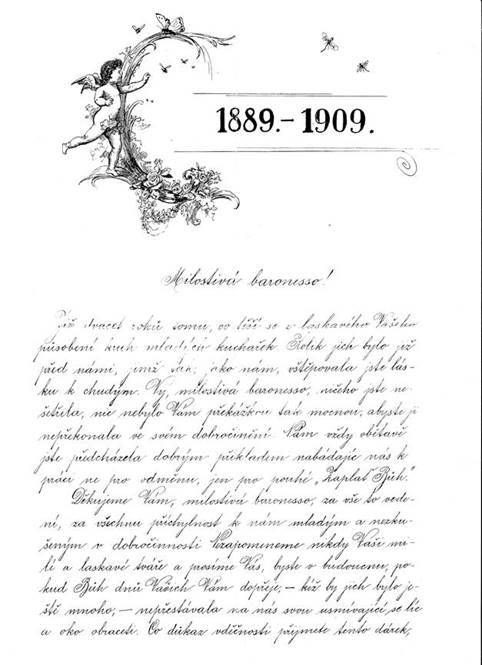 1889.-1909.
Milostivá baronesso!
Již dvacet roků tomu, co těší se z laskavého Vašeho
působení kruh mladých kuchařek. Kolik jich bylo již
před námi, jimž tak, jako nám, vštěpovala jste lás-
ku k chudým. Vy, milostivá baronesso, ničeho jste ne-
šetřila, nic nebylo Vám překážkou tak mocnou, abyste ji
nepřekonala ve svém dobročinění. Nám vždy obětavě
jste předcházela dobrým příkladem nabádajíc nás k
práci ne pro odměnu, jen pro pouhé „Zaplať Bůh."
Děkujeme Vám, milostivá baronesso, za vše to vede-
ní, za všechnu příchylnost k nám mladým a nezku-
šeným v dobročinnosti. Nezapomeneme nikdy Vaší mi-
lé a laskavé tváře a prosíme Vás, byste v budoucnu, po-
kud Bůh dnů Vašich Vám dopřeje, – kéž by jich bylo je-
ště mnoho, – nepřestávala na nás svou usmívající se líc
a oko obraceti. Co důkaz vděčnosti přijmete tento dárek,